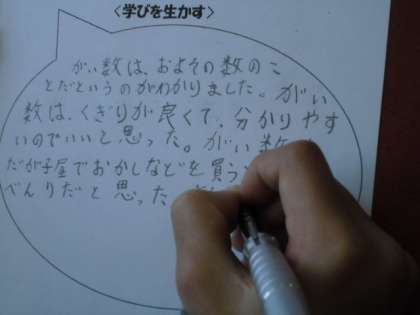 〈学びを生かす〉
がい数は、およその数のこ
とだというのがわかりました。がい
数は、くぎりが良くて、分かりやす
いのでいいと思った。がい数
だが子屋でおかしなどを買う、
べんりだと思った